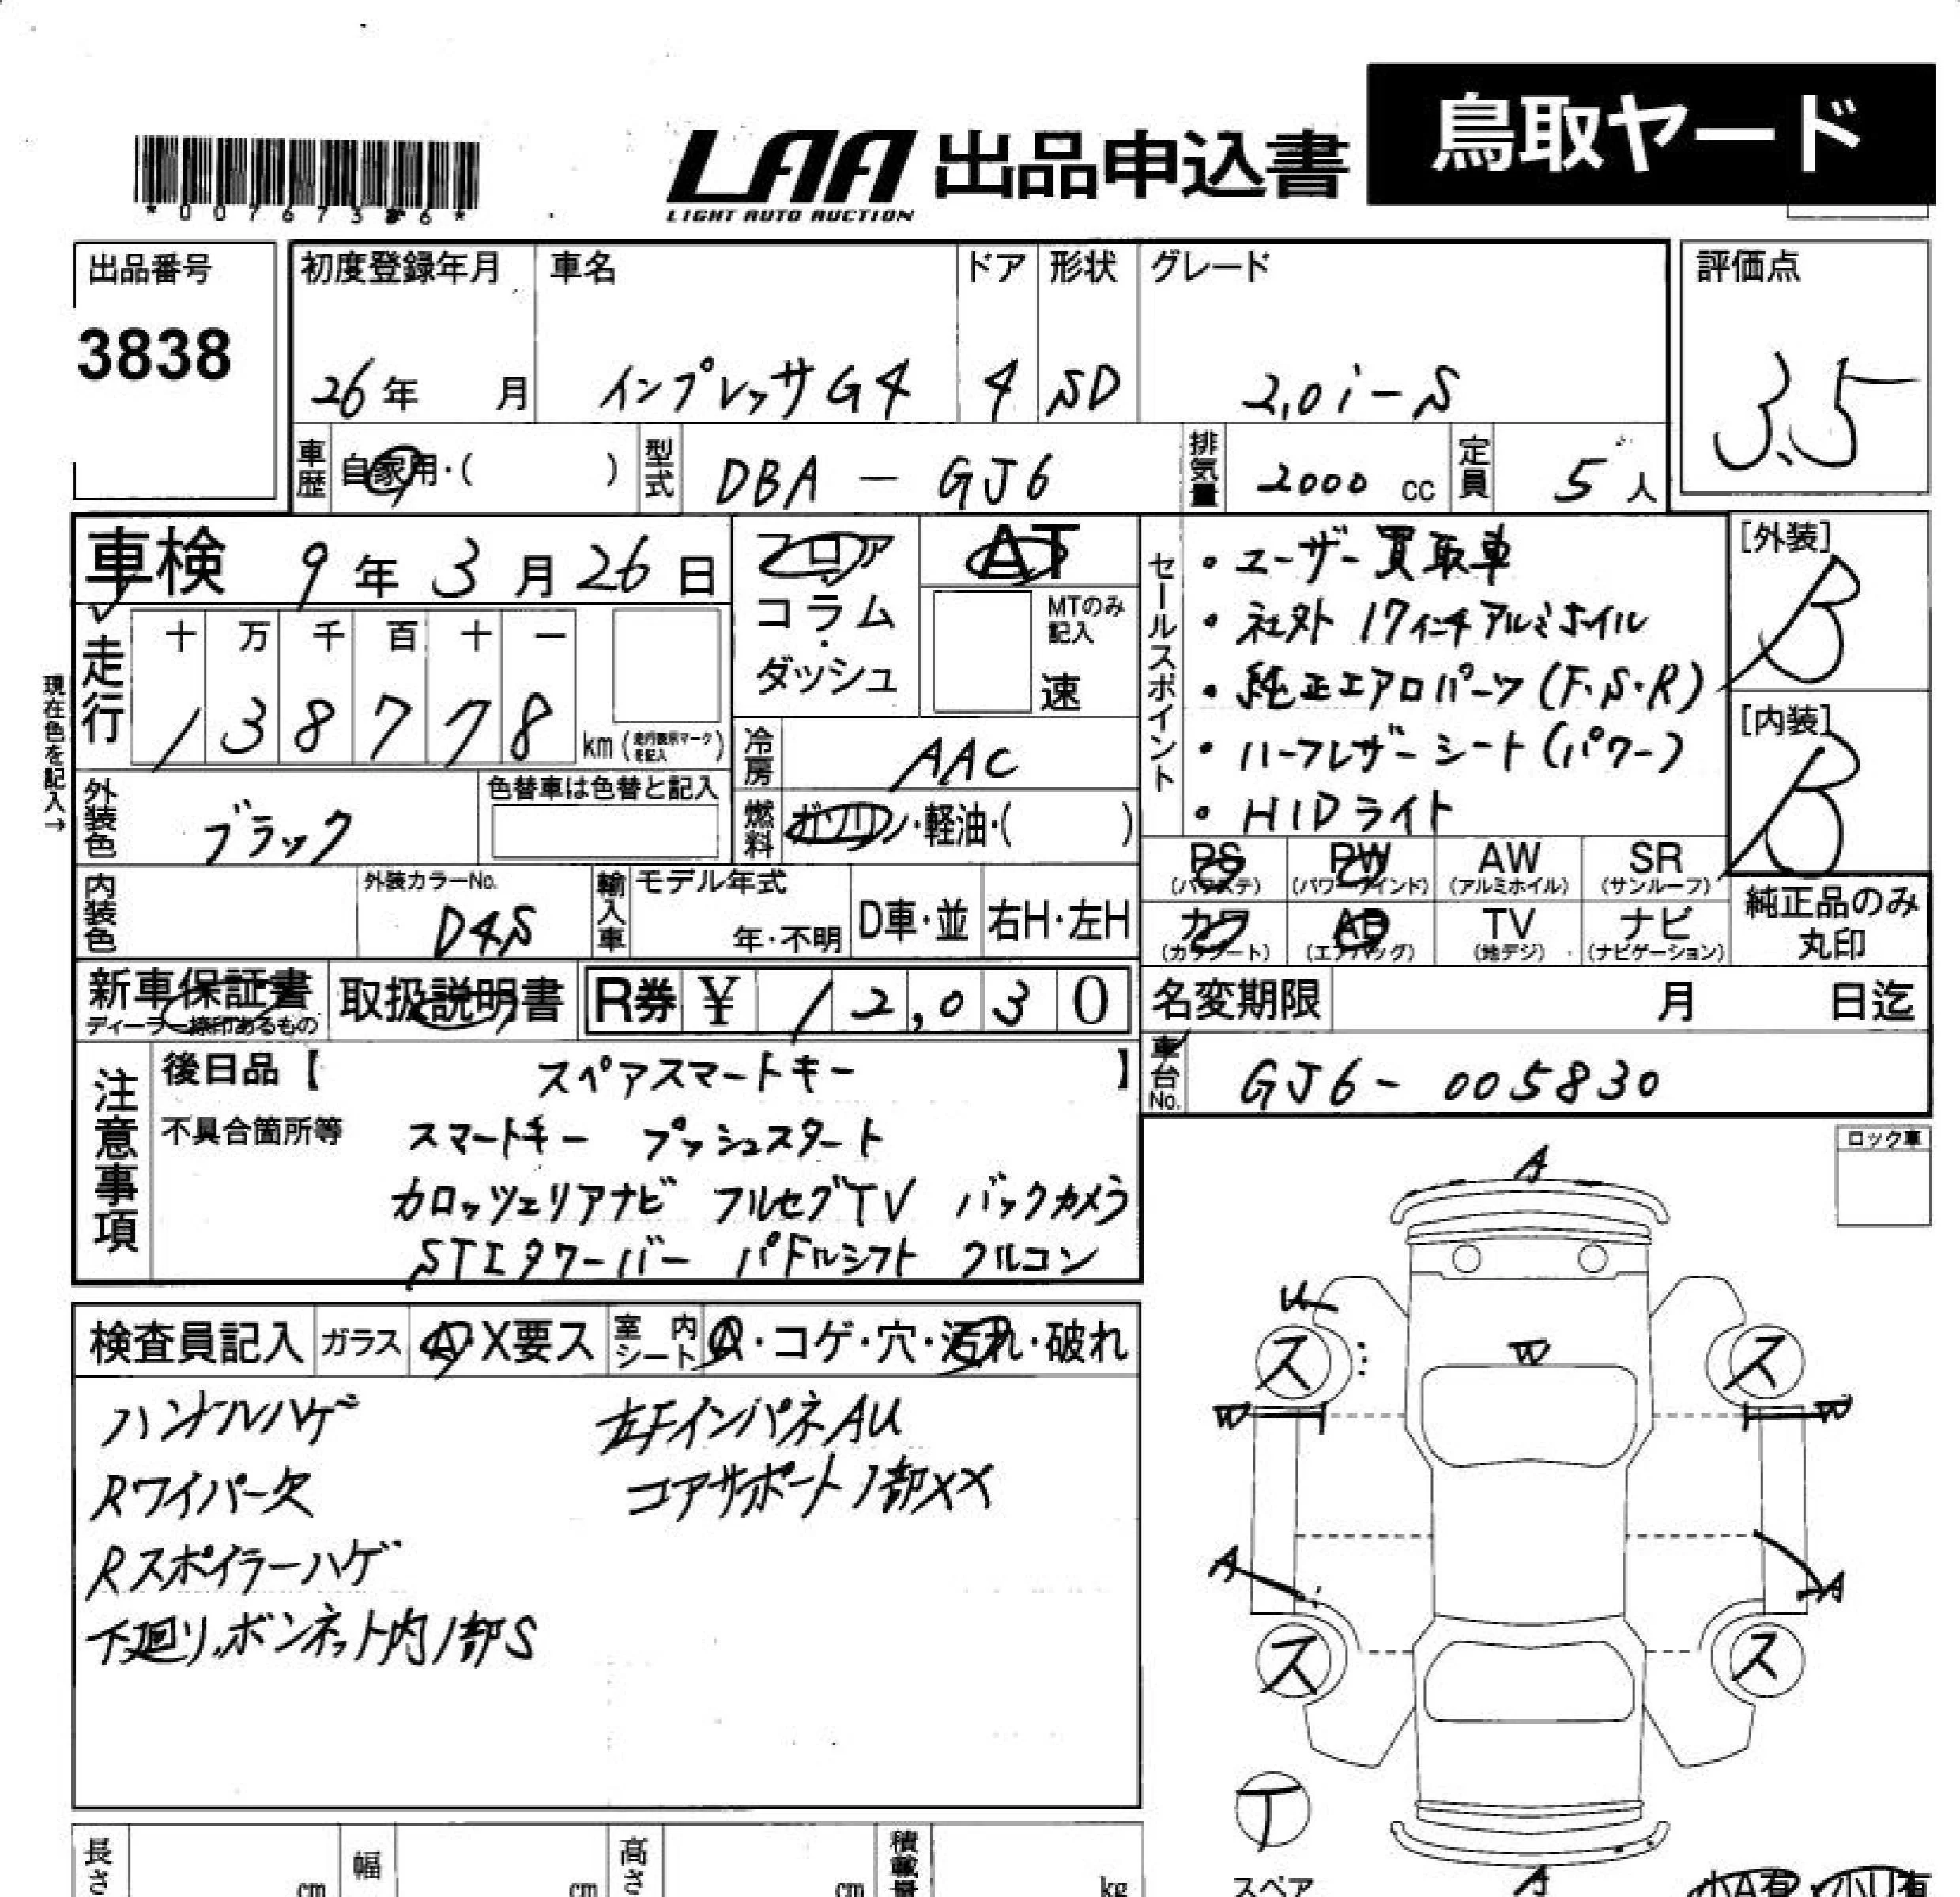 鳥取ヤード
LAA 出品申込書
LIGHT AUTO AUCTION
出品番号
3838
初度登録年月 車名 ドア 形状 グレード 評価点
26年 月 インプレッサG4 4 SD 2.0i-S 3.5
車歴 自家用・( ) 型式 DBA - GJ6 排気量 2000 cc 定員 5 人
車検 9年 3月 26日
フロア・コラム・ダッシュ
AT
MTのみ記入
速
現在色を記入→
走行 十 万 千 百 十 一
1 3 8 7 7 8 km (走行表示マークを記入)
冷房 AAC
外装色 ブラック
色替車は色替と記入
燃料 ガソリン・軽油・( )
内装色
外装カラーNo.
D4S
輸入車 モデル年式
年・不明 D車・並 右H・左H
セールスポイント
・ユーザー買取車
・社外 17インチアルミホイル
・純正エアロパーツ(F.S.R)
・ハーフレザーシート(パワー)
・HIDライト
[外装]
B
[内装]
B
PS PW AW SR
(パワステ) (パワーウインド) (アルミホイル) (サンルーフ)
カワ AB TV ナビ
(カワシート) (エアバッグ) (地デジ) (ナビゲーション)
純正品のみ
丸印
新車保証書
ディーラー捺印あるもの
取扱説明書
R券 ¥ 12,030
名変期限 月 日迄
車台No. GJ6- 005830
注意事項
後日品【 スペアスマートキー 】
不具合箇所等 スマートキー プッシュスタート
カロッツェリアナビ フルセグTV バックカメラ
STIタワーバー パドルシフト クルコン
ロック車
検査員記入 ガラス A・X要ス 室内シート A・コゲ・穴・汚れ・破れ
ハンドルハゲ 左FインパネAU
Rワイパー欠 コアサポート1部XX
Rスポイラーハゲ
下廻り、ボンネット内1部S
A
U
ス W ス
W W
A A
ス ス
丁
スペア
A
小A有・小U有
長さ cm 幅 cm 高さ cm 積載量 kg